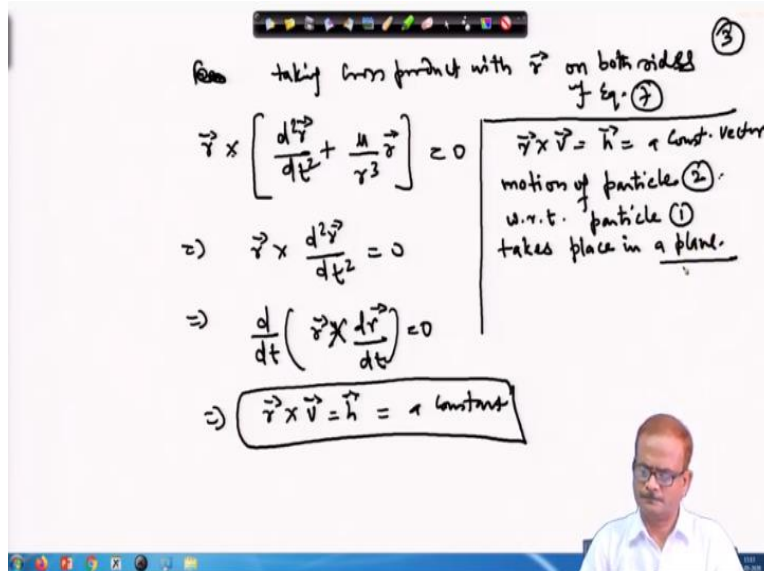 ③
taking cross product with r⃗ on both sides
of Eq. ⑦
r⃗ × [ d²r⃗/dt² + μ/r³ r⃗ ] = 0
=) r⃗ × d²r⃗/dt² = 0
=) d/dt ( r⃗ × dr⃗/dt ) = 0
=) r⃗ × v⃗ = h⃗ = a constant
r⃗ × v⃗ = h⃗ = a const. vector
motion of particle ②.
w.r.t. particle ①
takes place in a plane.